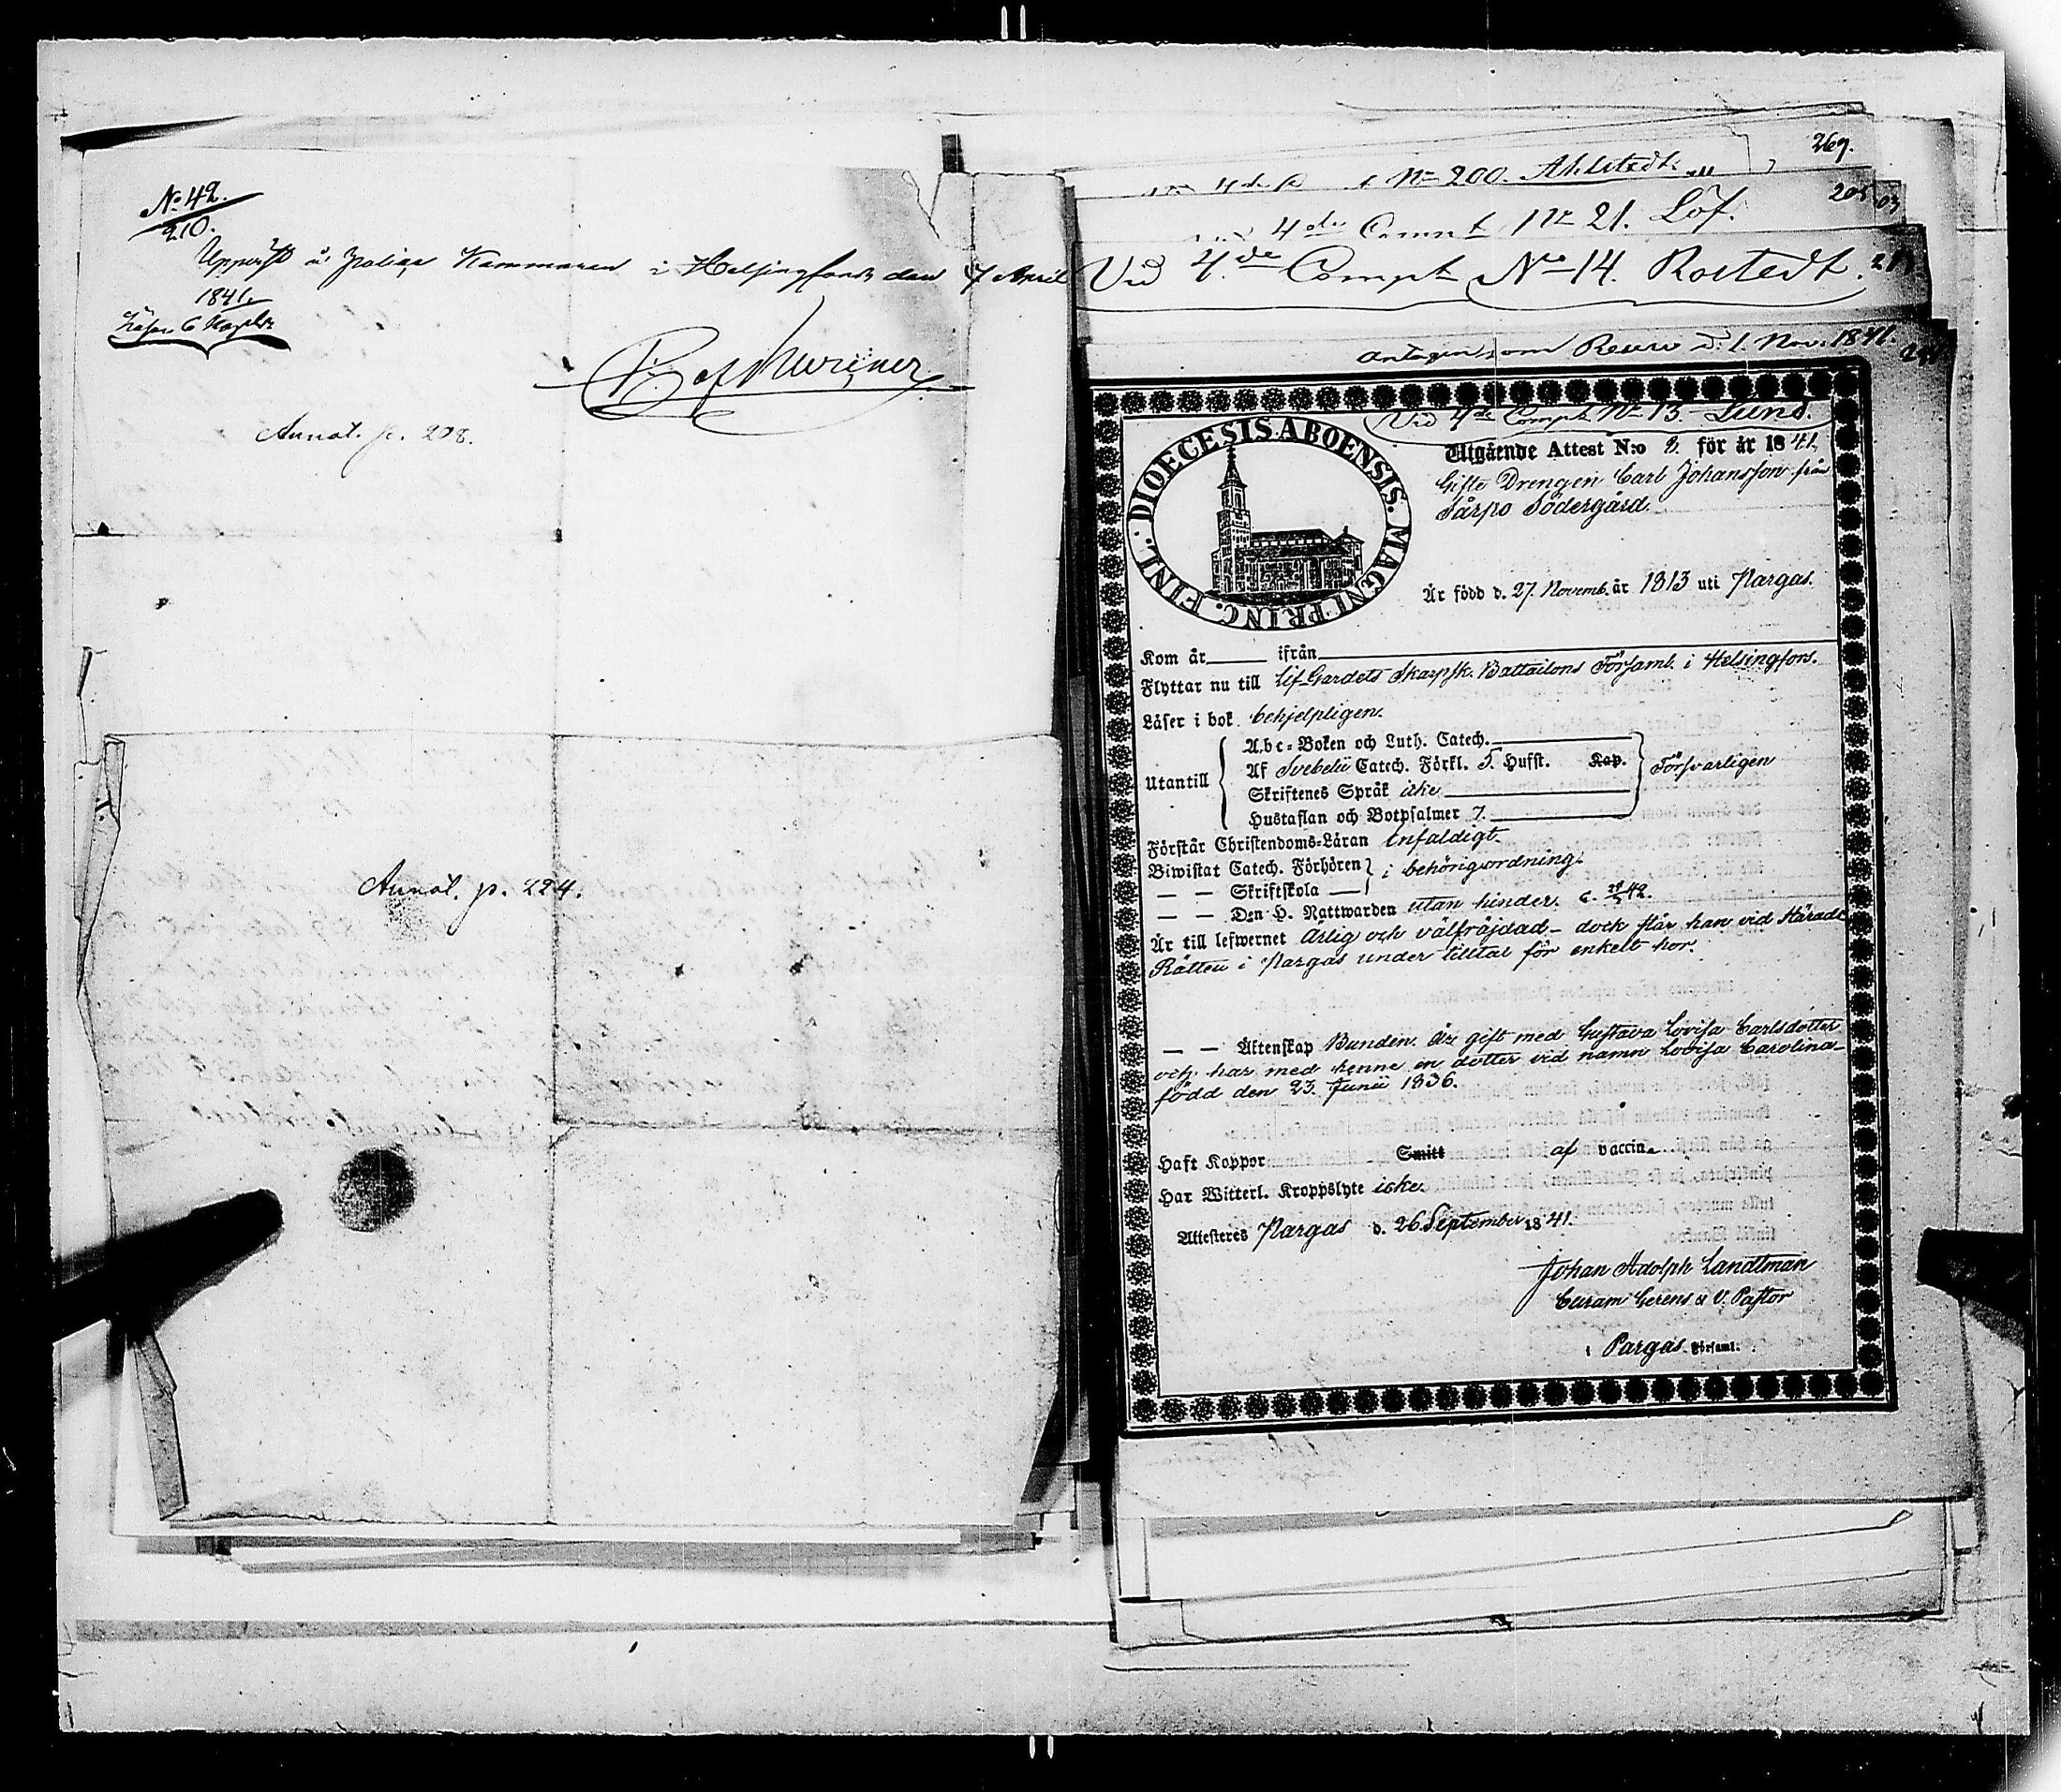 No 42.
210.
Uppvist å Police Kammaren i Helsingfors den 7 April
1841.
Annot. p. 208.
Annot. p. 224.
269.
No 200. Ahlstedt.
205
4de Compt No 21. Löf.
Vid 4.de Compt No 14. Rostedt.
antagen som Recrut d. 1. Nov. 1841.
Vid 4de Compt No 13. Lund.
DIOECESIS ABOENSIS. MAGNI PRINC. FINL.
Utgående Attest N:o 8. för år 1841.
Gifte Drengen Carl Johansson från
Särpo Södergård.
Är född d. 27. Novemb. år 1813 uti Pargas.
Kom år ifrån
Flyttar nu till Lif Gardets Skarpsk. Battailons Församl. i Helsingfors.
Läser i bok behjelpligen.
Utantill
Abc-Boken och Luth. Catech.
Af Svebelii Catech. Förkl. 5. Hufst. Kap.
Försvarligen
Skriftenes Språk icke
Hustaflan och Botpsalmer 7.
Förstår Christendoms-Läran enfaldigt.
Biwistat Catech. Förhören
i behörig ordning.
— — Skriftskola —
— — Den H. Nattwarden utan hinder.
Är till lefwernet Ärlig och välfräjdad - dock står han vid Härads
Rätten i Pargas under tilltal för enkelt hor.
— — Äktenskap Bunden. Är gift med Gustava Lovisa Carlsdotter
och har med henne en dotter vid namn Lovisa Carolina
född den 23. Junii 1836.
Haft Koppor Smitt af vaccin.
Har Witterl. Kroppslyte icke.
Attesteres Pargas d. 26. September 1841.
Johan Adolph Landtman
Curam Gerens & V. Pastor
i Pargas Församl: